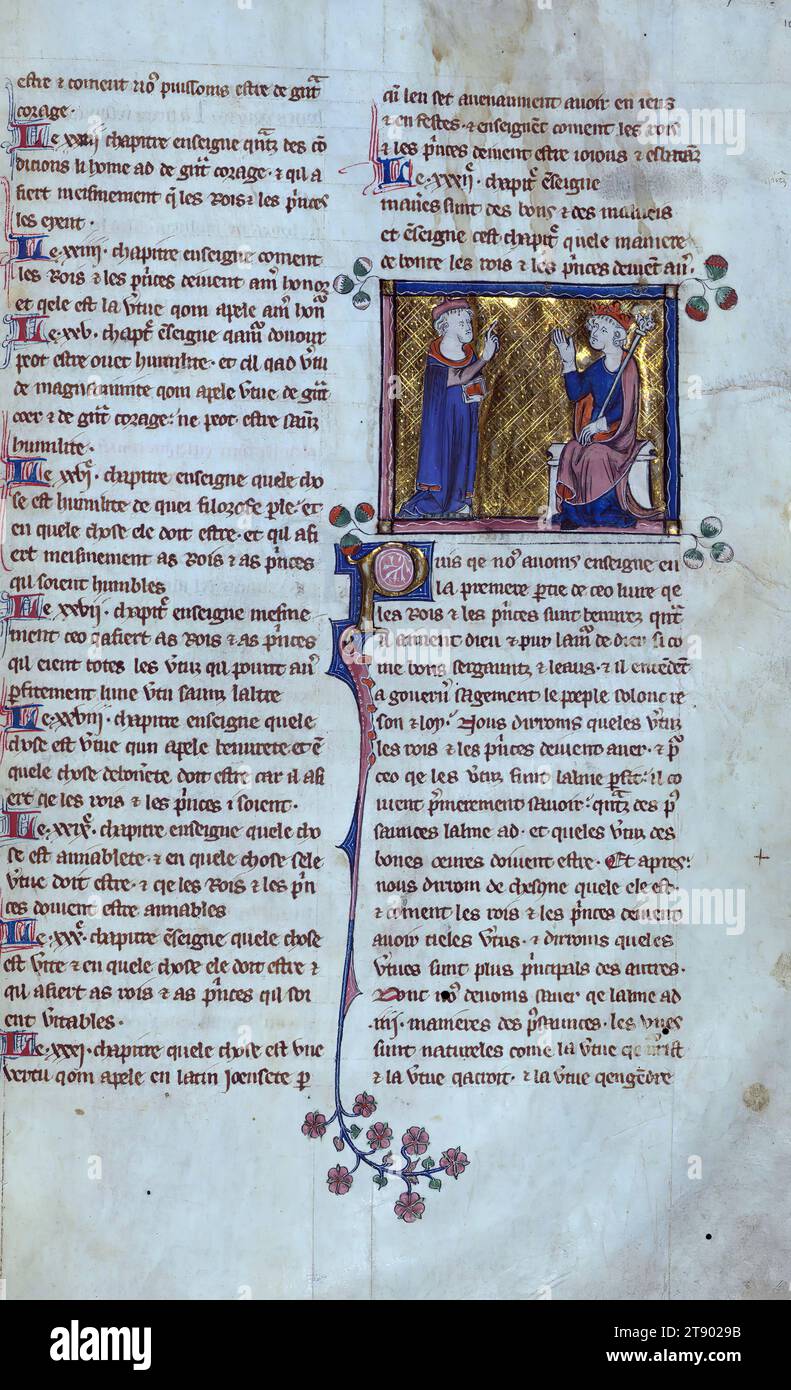 estre ⁊ coment no᷒ puissoms estre de gᷓnt
corage ·
Le xxiij chapitre enseigne qᷓntz des cō
dicions li home ad de gᷓnt corage · ⁊ qil a
fiert meismement q̄ les Rois ⁊ les p͛nces
les eient ·
Le · xxiiij · chapitre enseigne coment
les Rois ⁊ les p͛nces deivent am̄ honor
et qele est la v͛tue qom apele am̄
Le · xxv · chapt͛ ēseigne
peot estre ovec humilite · et cil qad v͛tu
de magnanimite qom apele v͛tue de gᷓnt
coer ⁊ de gᷓnt corage : ne peot estre saunz
humilite ·
Le · xxvj · chapitre enseigne quele cho
se est humilite de quei filozofe ꝑle · et
en quele chose ele doit estre · et qil afi
ert meismement as Rois ⁊ as p͛nces
qil soient humbles
Le · xxvij · chapit͛ enseigne meisme
ment ceo qafiert as Rois ⁊ as p͛nces
qil eient totes les v͛tuz qil
ꝑfitement lune v͛tu saunz laltre
Le · xxviij · chapitre enseigne quele
chose est v͛tue qun apele et ē
quele chose doit estre car il afi
ert qe les rois ⁊ les p͛nces i soient ·
Le · xxix · chapitre enseigne quele cho
se est amiablete · ⁊ en quele chose sele
v͛tue doit estre · ⁊ qe les Rois ⁊ les p͛n
ces doivent estre amiables
Le · xxx · chapitre ēseigne quele chose
est v͛ite ⁊ en quele chose ele doit estre ⁊
qil afiert as rois ⁊ as p͛nces qil soi
ent v͛itables ·
Le · xxxj · chapitre quele chose est une
vertu qom apele en latin ꝑ
qi len set avenaument avoir en ieus
⁊ en festes · ⁊ enseignēt coment les rois
⁊ les p͛nces deivent estre ioious ⁊
Le · xxxij · chapit͛ ēseigne
maneres sunt des bons ⁊ des malveis
et ēseigne cest chapit͛ quele maniere
de bonte les rois ⁊ les p͛nces deivēt av͛
Puis qe no᷒ avoms enseigne en
la premere ꝑtie de ceo livre qe
les Rois ⁊ les p͛nces sunt qᷓnt
il eiment dieu ⁊ pur lam᷒ de dieu si co
me bons sergauntz ⁊ leaus · ⁊ il entendēt
a gov͛n͛ sagement le poeple solonc re
son ⁊ loy · Nous dirroms queles v͛tuz
les rois ⁊ les p͛nces deivent aver · ⁊ pᷓ
ceo qe les v͛tuz funt lalme ꝑfit : il co
vient p͛merement savoir : qᷓntz des p᷒
saunces lalme ad · et queles v͛tuz des
bones oeures doivent estre · Et apres :
nous dirrom de chescune quele ele est ·
⁊ coment les rois ⁊ les p͛nces deivent
avoir tieles v͛tus · ⁊ dirroms queles
v͛tues sunt plus p͛ncipals des autres ·
Dont no᷒ devoms saver qe lalme ad
iiij · manieres des p᷒saunces · les unes
sunt natureles come la v͛tue qe
⁊ la v͛tue qacroit · ⁊ la v͛tue qengēdre
alamy
Image ID: 2T9029B
www.alamy.com